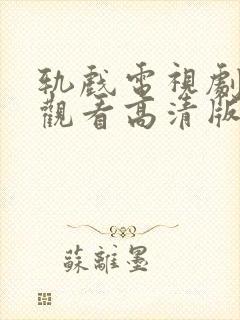 軌戲電視劇
觀看高清版
蘇離墨